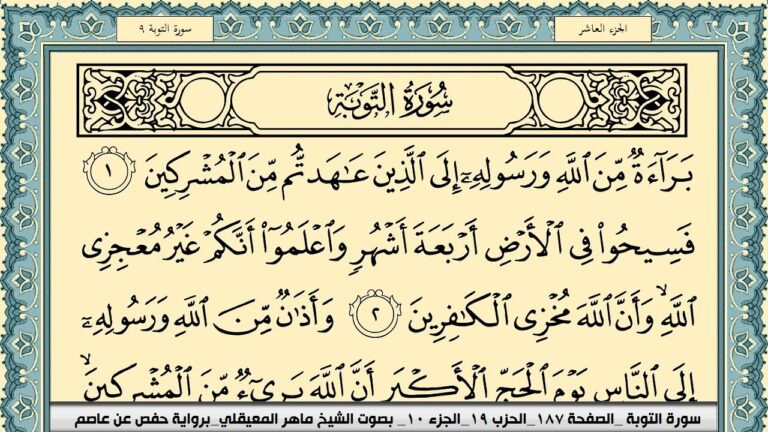 الجزء العاشر
سورة التوبة ٩
سُورَةُ التَّوۡبَةِ
بَرَآءَةٌ مِّنَ ٱللَّهِ وَرَسُولِهِۦٓ إِلَى ٱلَّذِينَ عَٰهَدتُّم مِّنَ ٱلۡمُشۡرِكِينَ ١
فَسِيحُواْ فِي ٱلۡأَرۡضِ أَرۡبَعَةَ أَشۡهُرٖ وَٱعۡلَمُوٓاْ أَنَّكُمۡ غَيۡرُ مُعۡجِزِي
ٱللَّهِ وَأَنَّ ٱللَّهَ مُخۡزِي ٱلۡكَٰفِرِينَ ٢ وَأَذَٰنٞ مِّنَ ٱللَّهِ وَرَسُولِهِۦٓ
إِلَى ٱلنَّاسِ يَوۡمَ ٱلۡحَجِّ ٱلۡأَكۡبَرِ أَنَّ ٱللَّهَ بَرِيٓءٞ مِّنَ ٱلۡمُشۡرِكِينَ
سورة التوبة _الصفحة ١٨٧_الحزب ١٩_الجزء ١٠_ بصوت الشيخ ماهر المعيقلي_برواية حفص عن عاصم